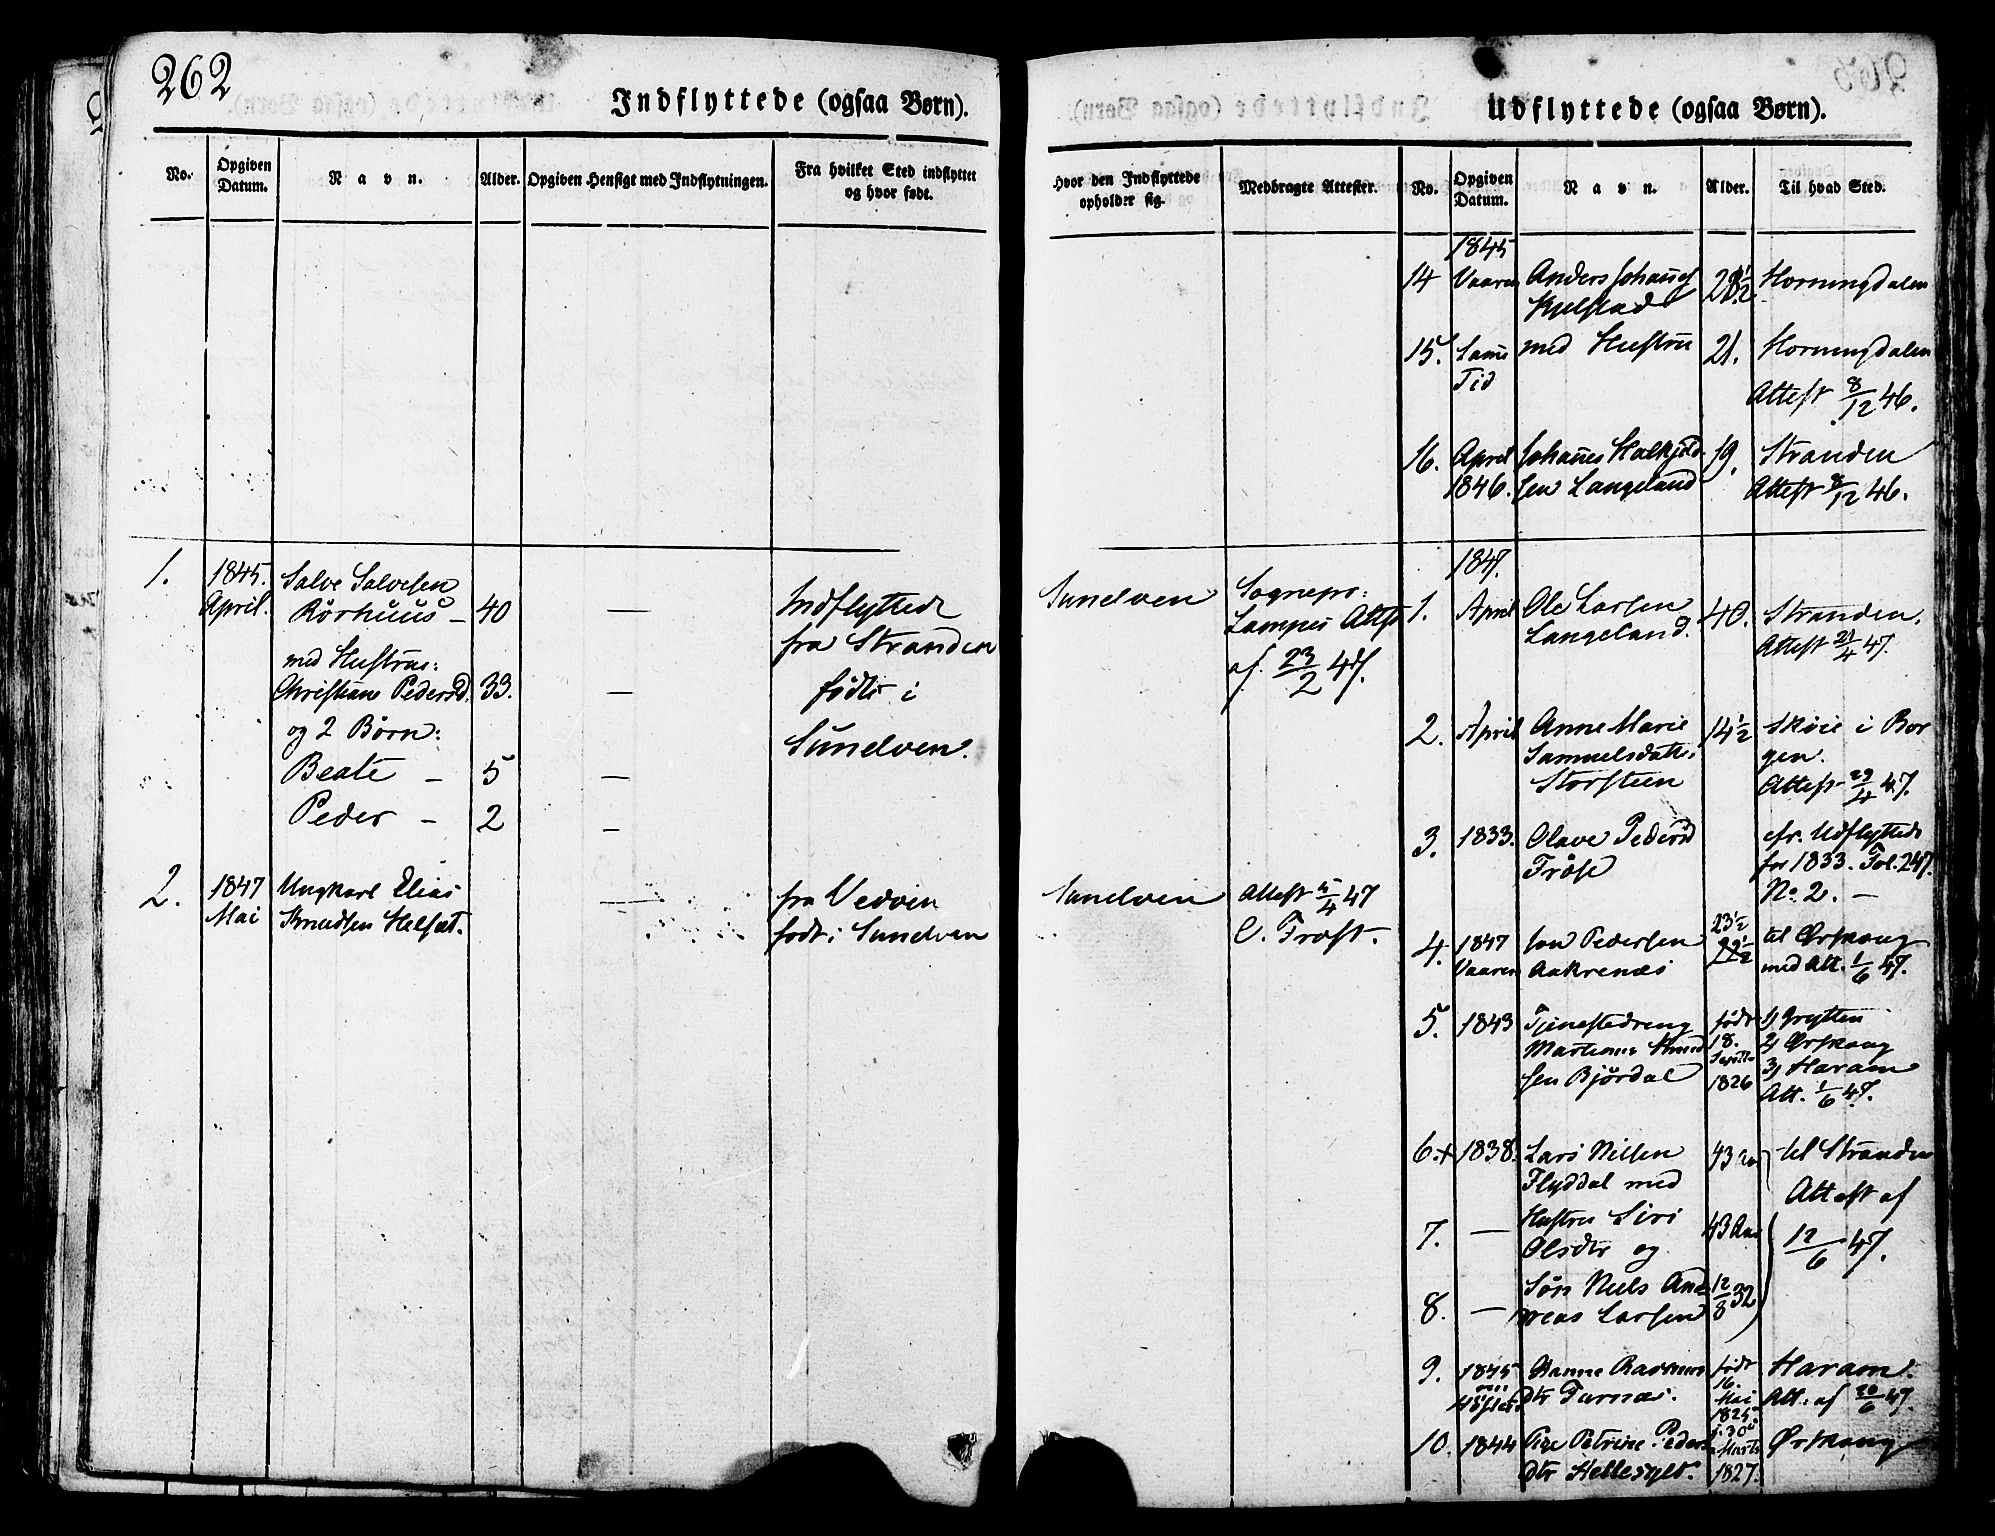 262
Indflyttede (ogsaa Børn).
No.
Opgiven Datum.
Navn.
Alder.
Opgiven Hensigt med Indflytningen.
Fra hvilket Sted indflyttet og hvor født.
1.
1845.
April.
Salve Salvesen
Rörhuus – 40 —
med Hustrue:
Christiane Pedersd. 33. —
og 2 Børn:
Beate – 5 —
Peder – 2 –
Indflyttede
fra Stranden
födte i
Sunelven.
2.
1847
Mai
Ungkarl Elias
Knudsen Helset.
—
fra Vedøen
født i Sunelven
Udflyttede (ogsaa Børn).
Hvor den Indflyttede opholder sig.
Medbragte Attester.
No.
Opgiven Datum.
Navn.
Alder.
Til hvad Sted.
Sunelven
Sognepr:
Lampes Attest
af 23/2 47.
Sunelven
Attest 5/4 47
C. Frost.
1845
14 Vaaren Anders Johannes 28½ Horningdalen
Kjelstad
15. Samme med Hustru 21. Horningdalen
Tid
Attest 8/12 46.
16. April Johannes 19. Stranden
1846. sen Langeland Attest 8/12 46.
1847.
1. April Ole Larsen 40. Stranden.
Langeland. Attest 21/4 47.
2. April Anne Marie 14½ Skøie i Bor
Samuelsdatter gen.
Storsteen Attest 29/4 47.
3. 1833. Olave Pedersd cfr. Udflyttede
Fröse for 1833. Fol. 247.
No. 2. —
4. 1847 Jon Pedersen 23½ til Ørskoug
Vaaren Aakrenæs 22½ med Att. 1/6 47.
5. 1843 Tjenestedreng født 1, Grytten
Martinus Knud 18. 2, Ørskoug
sen Björdal Septbr 3, Haram
1826 Att. 1/6 47.
6.+ 1838. Lars Nilsen 43 Aar til Stranden
Flyddal med Attest af
7. — Hustru Siri 43 Aar 12/6 47.
Olsdtr og
8. — Søn Niels And 12/8 32
reas Larsen
9. 1845 Hanne Rasmus født Haram.
dtr 16. Mai Att. af 20/6 47.
1825.
10. 1844 Pige Petrine Peders f. 30 Ørskoug
dtr Hellesylt. Marts
1827.